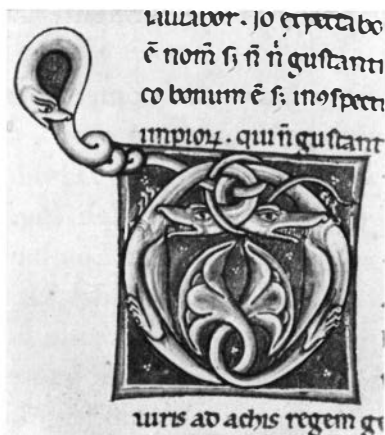 bo · Io expectabo
ē nom̄ sꝫ n̄ n̄ gustanti
co bonum ē sꝫ inꝯspecti
impioꝝ · qui n̄ gustant
uiris ad achis regem g